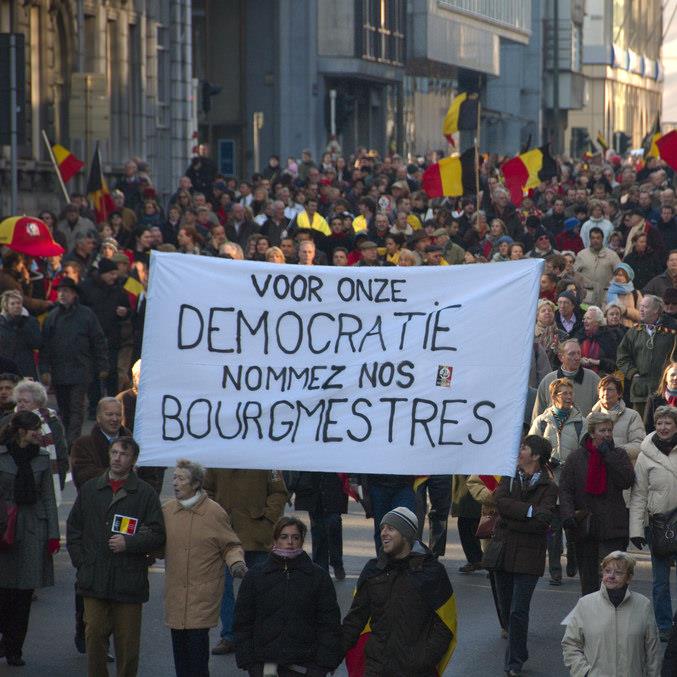 VOOR ONZE
DEMOCRATIE
NOMMEZ NOS
BOURGMESTRES